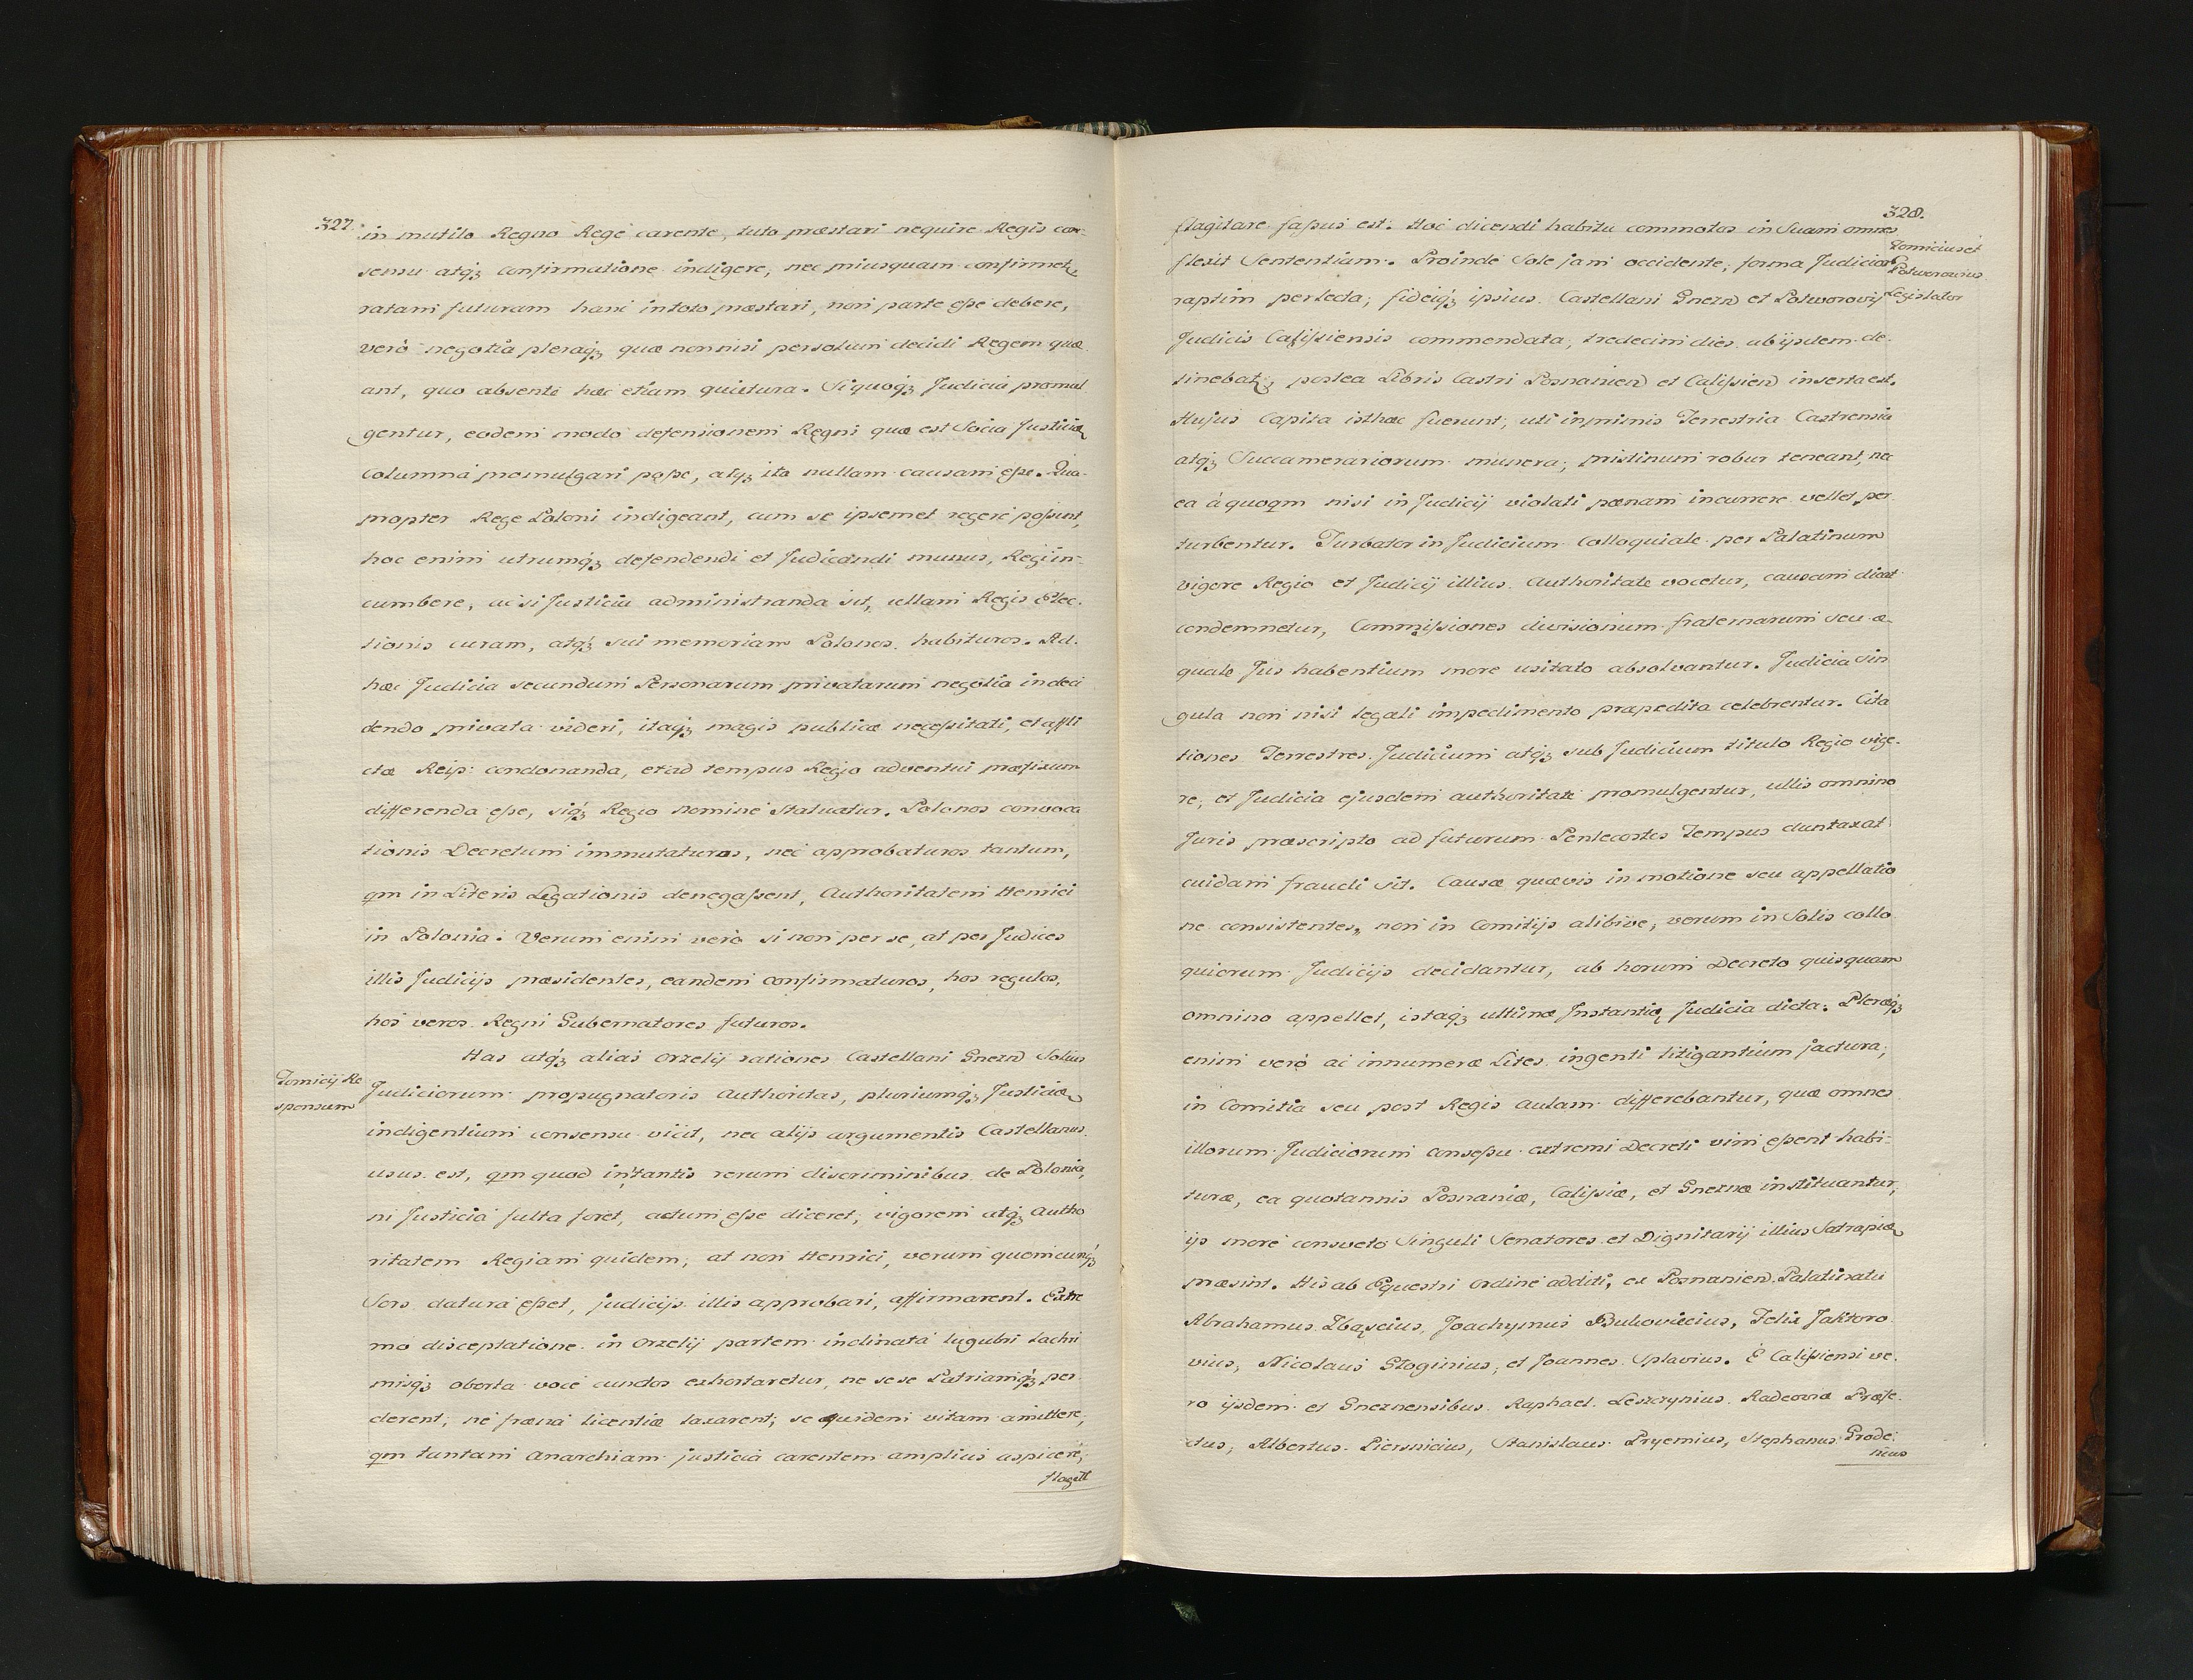 327.
in mutilo Regno Rege carente, tuto præstari nequire Regis con-
sensu atq₃ confirmatione indigere, nec priusquam confirmet,
ratam futuram hanc in toto præstari, non parte eſse debere,
verò negotia pleraq₃ quæ non nisi per solum decidi Regem que
ant, quo absente hæc etiam quietura. Si quoq₃ Judicia promul
gentur, eodem modo defensionem Regni quæ est Socia Justiciæ
Columna promulgari poſse, atq₃ ita nullam causam eſse. Qua-
propter Rege Poloni indigeant, cum se ipsemet regere poſsint,
hoc enim utrumq₃ defendendi et Judicandi munus, Regi in-
cumbere, ac si Justicia administranda sit, ullam Regis Elec-
tionis curam, atq₃ sui memoriam Polonos habituros. Ad-
hæc Judicia secundum Personarum privatarum negotia in deci
dendo privata videri, itaq₃ magis publicæ neceſsitati, et affli
ctæ Reip: condonanda, et ad tempus Regio adventui præfixum
differenda eſse, siq₃ Regio Nomine Statuatur. Polonos convoca
tionis Decretum immutaturos, nec approbaturos tantum,
qm in Literis Legationis denegaſsent, Authoritatem Henrici
in Polonia. Verum enim verò si non per se, at per Judices
illis Judicijs præsidentes, eandem confirmaturos, hos regulos,
hos veros Regni Gubernatores futuros.
Has atq₃ alias Orzelij rationes Castellani Gnezn Solius
Tomicij Re
sponsum
Judiciorum propugnatoris Authoritas, pluriumq₃ Justiciæ
indigentium consensu vicit, nec alijs argumentis Castellanus
usus est, qm quod in tantis rerum discriminibus de Polonia,
ni Justicia fulta foret, actum eſse diceret, vigorem atq₃ Autho
ritatem Regiam quidem, at non Henrici, verum quemcunq₃
Sors datura eſset, judicijs illis approbari, affirmarent. Extre
mo disceptatione in Orzelij partem inclinata lugubri lachri
misq₃ oborta voce cunctos exhortaretur, ne sese Patriamq₃ per
derent, ne fræna licentiæ laxarent, se quidem vitam amittere,
qm tantam Anarchiam justicia carentem amplius aspicere,
flagit
328.
flagitare faſsus est. Hoc dicendi habitu commotos in Suam omnes
Tomicius et
Potworovius
Legislator
flexit Sententiam. Proinde Sole jam occidente, forma Judicior
raptim perlecta, fideiq₃ ipsius Castellani Gnezn et Potworovij
Judicis Caliſsiensis commendata, tredecim dies ab ijsdem de-
tinebat, postea Libris Castri Posnanien et Caliſsien inserta est.
Hujus Capita isthæc fuerunt, uti inprimis Terrestria Castrensia
atq₃ Succamerariorum munera, pristinum robur teneant, nec
ea á quoqm nisi in Judicij violati pœnam incurrere vellet per
turbentur. Turbator in Judicium Colloquiale per Palatinum
vigore Regio et Judicij illius Authoritate vocetur, causam dicat
condemnetur, Commiſsiones divisionum fraternarum seu æ-
quale Jus habentium more usitato absolvantur. Judicia Sin
gula non nisi legali impedimento præpedita celebrentur. Cita
tiones Terrestres Judicium atq₃ sub Judicium titulo Regio vige-
re, et Judicia ejusdem authoritate promulgentur, ullis omnino
Juris præscripto ad futurum Pentecostes Tempus duntaxat
cuidam fraudi sit. Causæ quævis in motione seu appellatio
ne consistentes, non in Comitijs alibive, verum in Solis collo
quiorum Judicijs decidantur, ab horum Decreto quisquam
omnino appellet, istaq₃ ultimæ Instantiæ Judicia dicta. Pleræq₃
enim verò ac innumeræ Lites ingenti litigantium jactura,
in Comitia seu post Regis Aulam differebantur, quæ omnes
illorum Judiciorum conseſsu extremi Decreti vim eſsent habi-
turæ, ea quotannis Posnaniæ, Caliſsiæ, et Gneznæ instituantur,
ijs more consveto Singuli Senatores et Dignitarij illius Satrapiæ
præsint. His ab Equestri Ordine additi, ex Posnanien Palatinatu
Abrahamus Zbąscius, Joachymus Bukoviecius, Felix Jaktoro
vius, Nicolaus Gloginius, et Joannes Splavius. E Caliſsiensi ve-
ro ijsdem et Gneznensibus Raphael Leszczynius Radeoviæ Præfe-
ctus, Albertus Piersnicius, Stanislaus Pryemius, Stephanus Grode-
nius